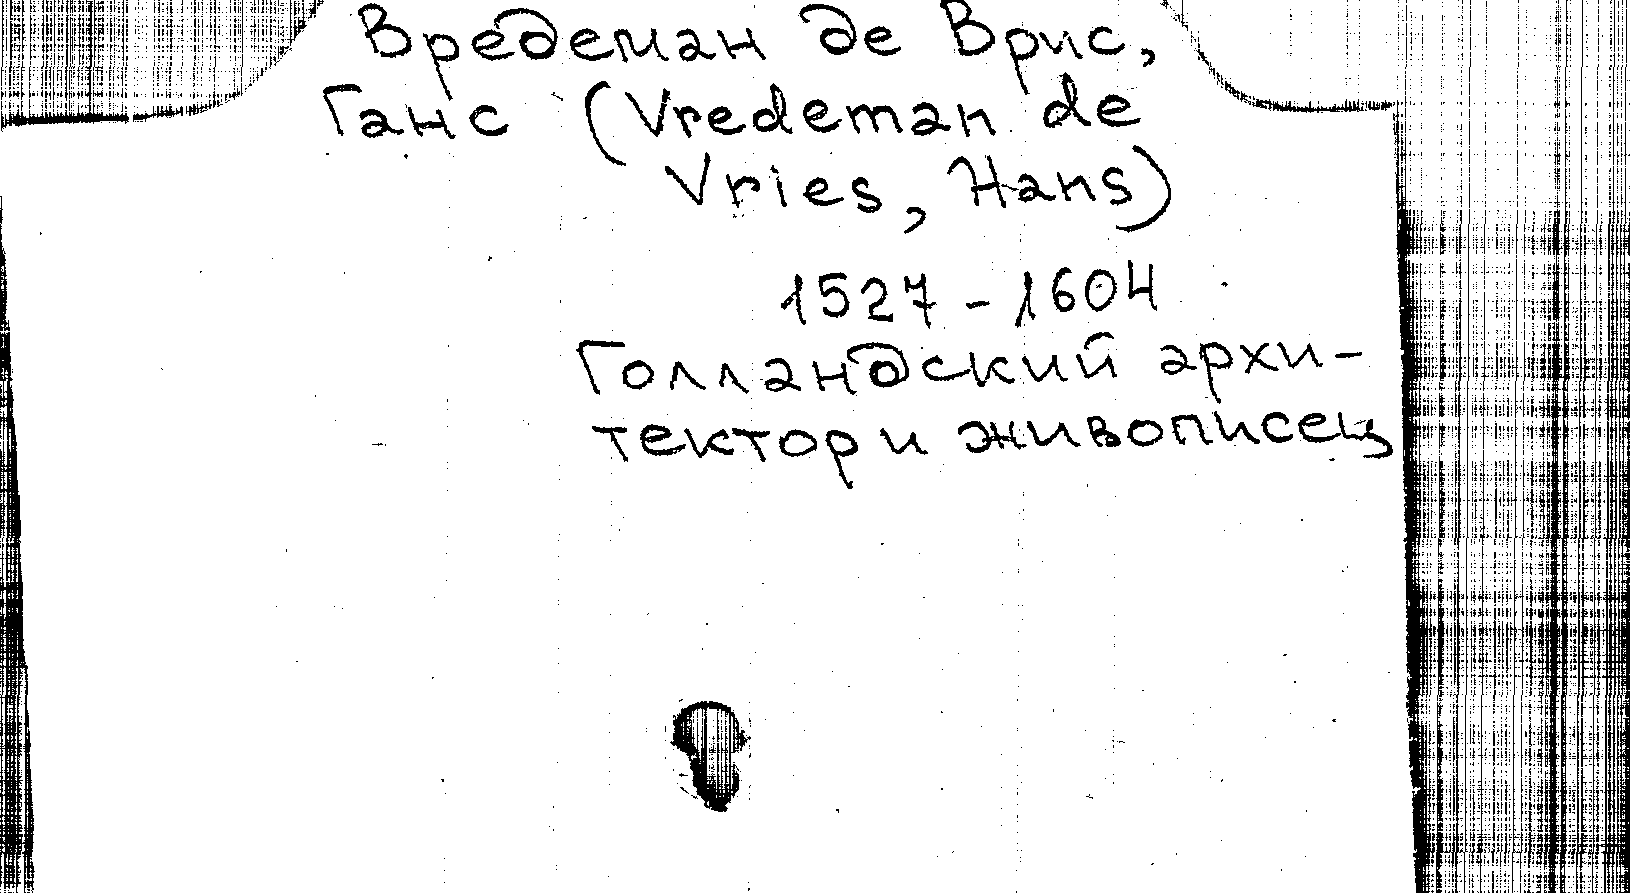 Вредеман де Врис,
Ганс (Vredeman de
Vries, Hans)
1527-1604
Голландский архи-
тектор и живописец